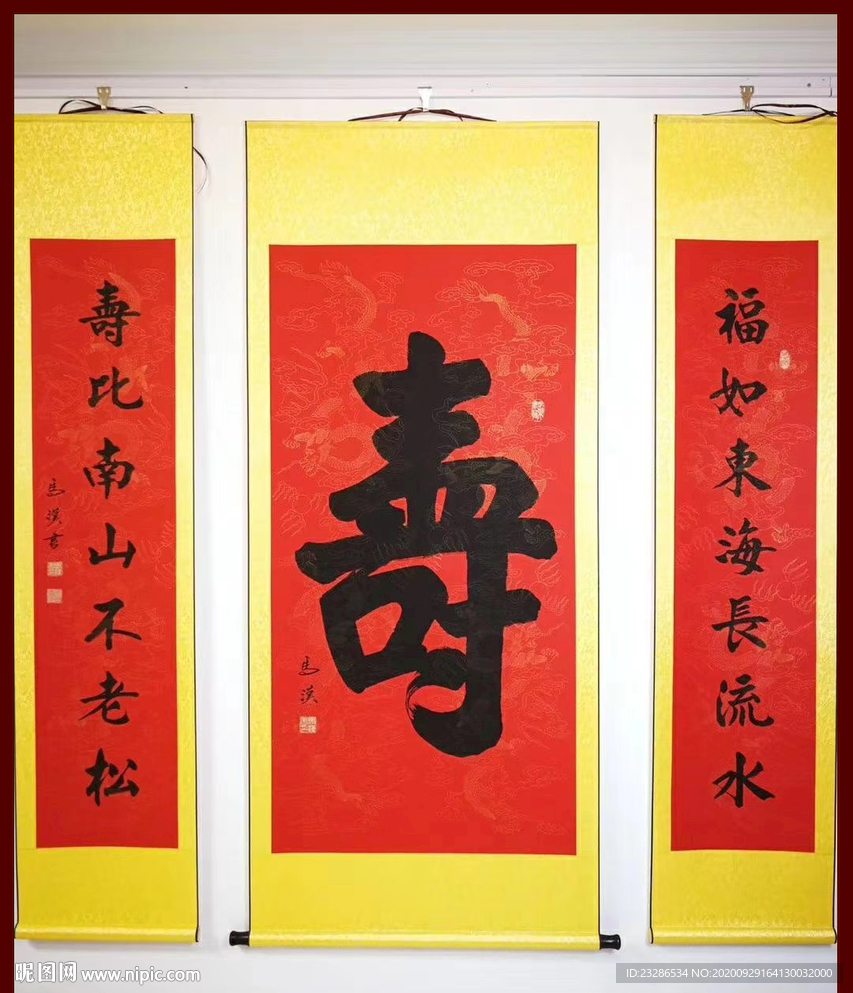 福如東海長流水
壽
馬漢
壽比南山不老松
馬漢書
昵图网 www.nipic.com
ID:23286534 NO:20200929164130032000